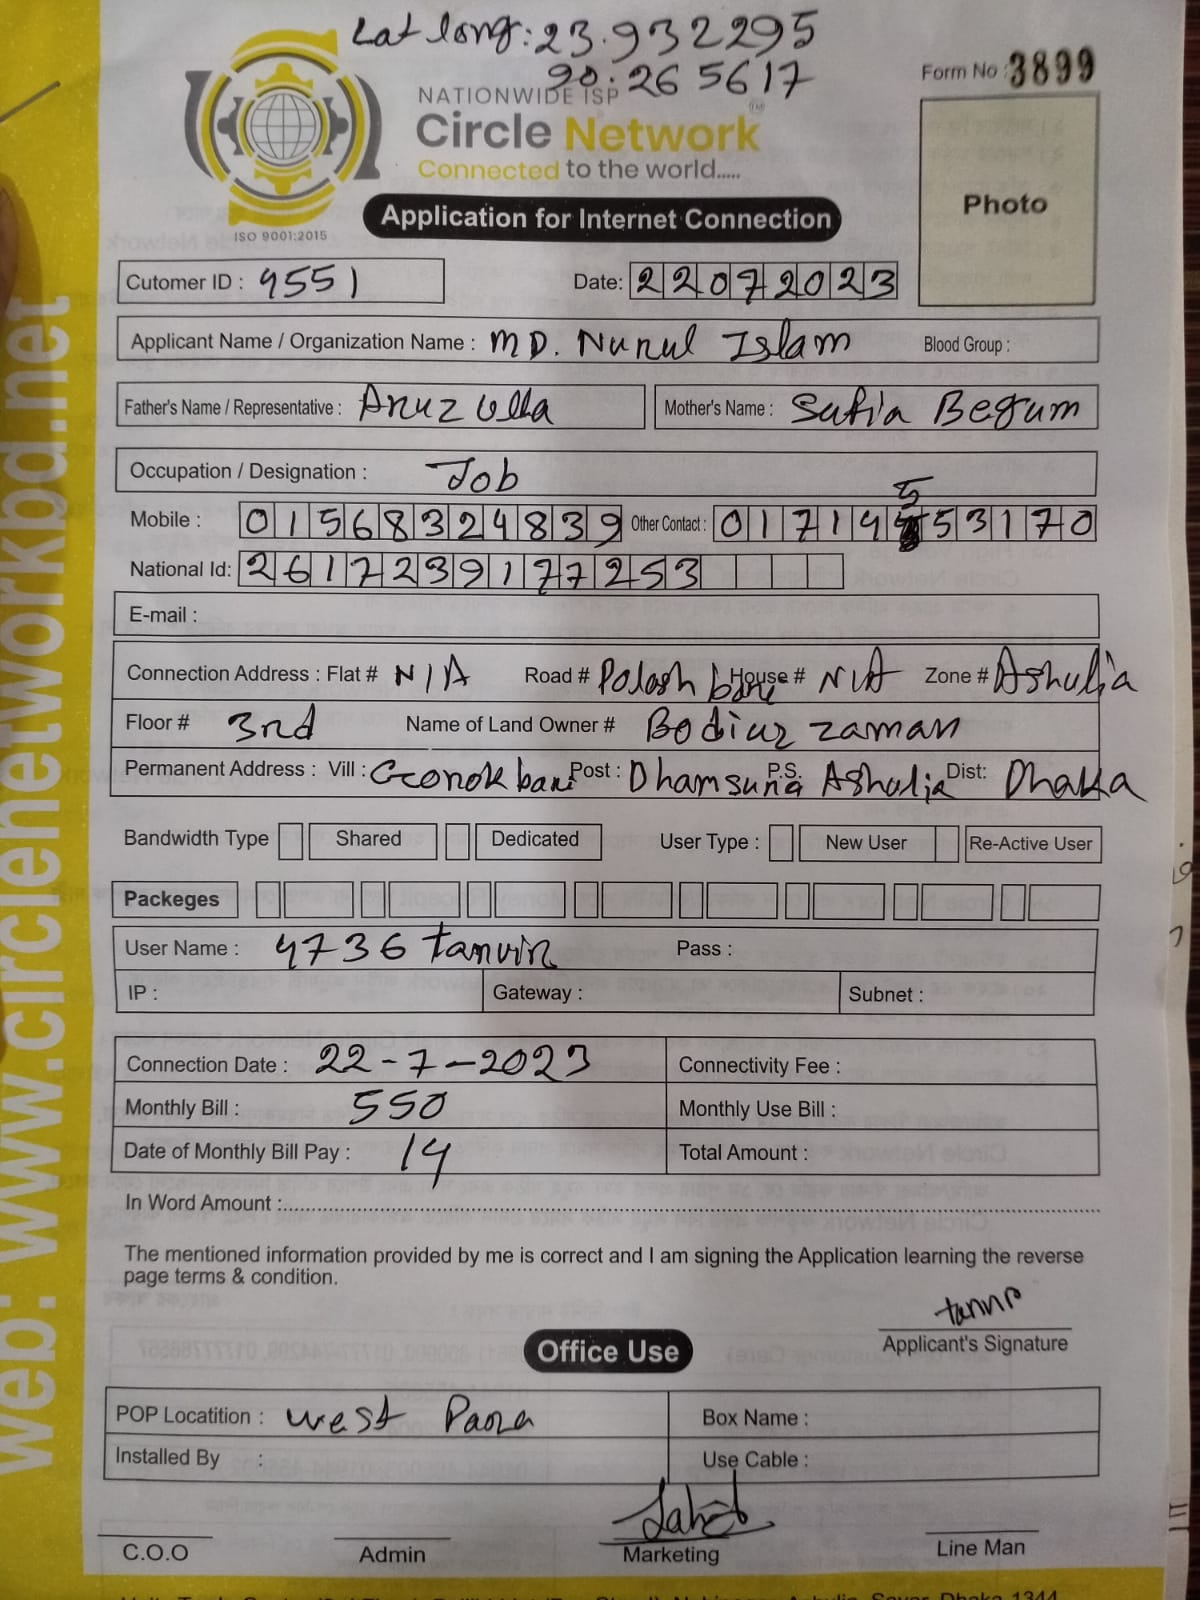 Lat long: 23.932295
90.265617
Form No : 3899
NATIONWIDE ISP
Circle Network
TM
Connected to the world.....
Photo
ISO 9001:2015
Application for Internet Connection
Cutomer ID : 4551 Date: 22072023
Applicant Name / Organization Name : MD. Nurul Islam Blood Group :
Father's Name / Representative : Aruz ulla Mother's Name : Sufia Begum
Occupation / Designation : Job
Mobile : 01568324839 Other Contact : 01714553170
National Id: 2617239177253
E-mail :
Connection Address : Flat # N/A Road # Polash bari House # N/A Zone # Ashulia
Floor # 3rd Name of Land Owner # Bodiuz zaman
Permanent Address : Vill : Gonok bari Post : Dhamsuna P.S. Ashulia Dist: Dhaka
Bandwidth Type Shared Dedicated User Type : New User Re-Active User
Packeges
User Name : 4736 tanvir Pass :
IP : Gateway : Subnet :
Connection Date : 22-7-2023 Connectivity Fee :
Monthly Bill : 550 Monthly Use Bill :
Date of Monthly Bill Pay : 14 Total Amount :
In Word Amount :
The mentioned information provided by me is correct and I am signing the Application learning the reverse
page terms & condition.
Applicant's Signature
Office Use
POP Locatition : West Para Box Name :
Installed By : Use Cable :
C.O.O Admin Marketing Line Man
web: www.circlenetworkbd.net